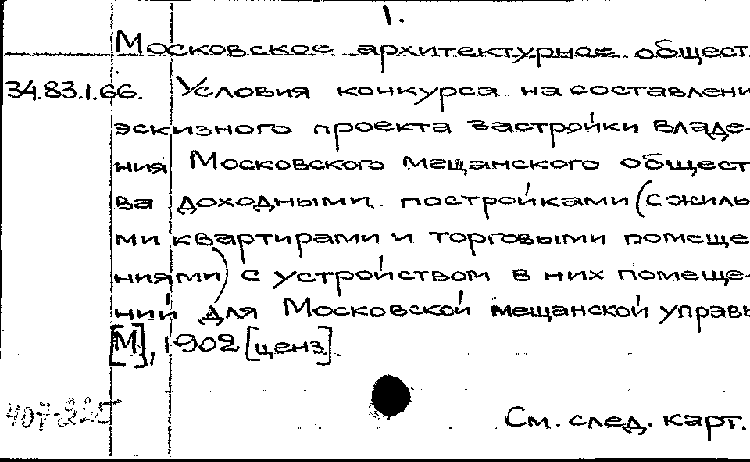 1.
Московское архитектурное общест
34.83.1.66. Условия конкурса на составлени
эскизного проекта застройки владе-
ния Московского мещанского общест
ва доходными постройками (с жилы
ми квартирами и торговыми помеще
ниями) с устройством в них помеще-
ний для Московской мещанской управы
[М], 1902 [ценз]
См. след. карт.